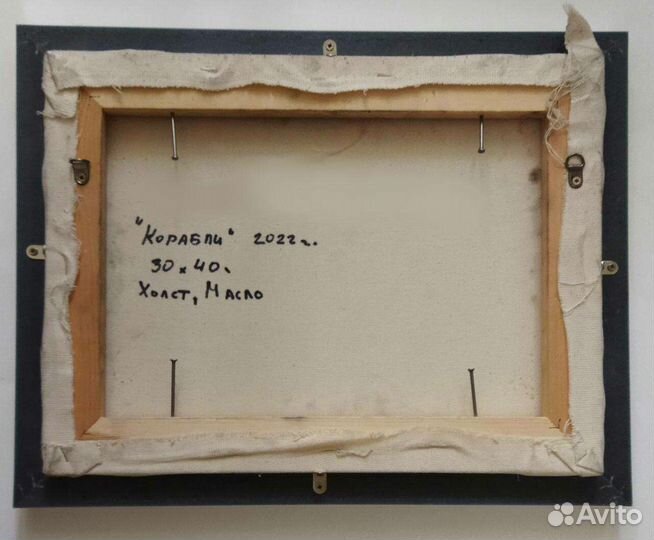 "Корабли" 2022г.
30х40.
Холст, Масло
Avito